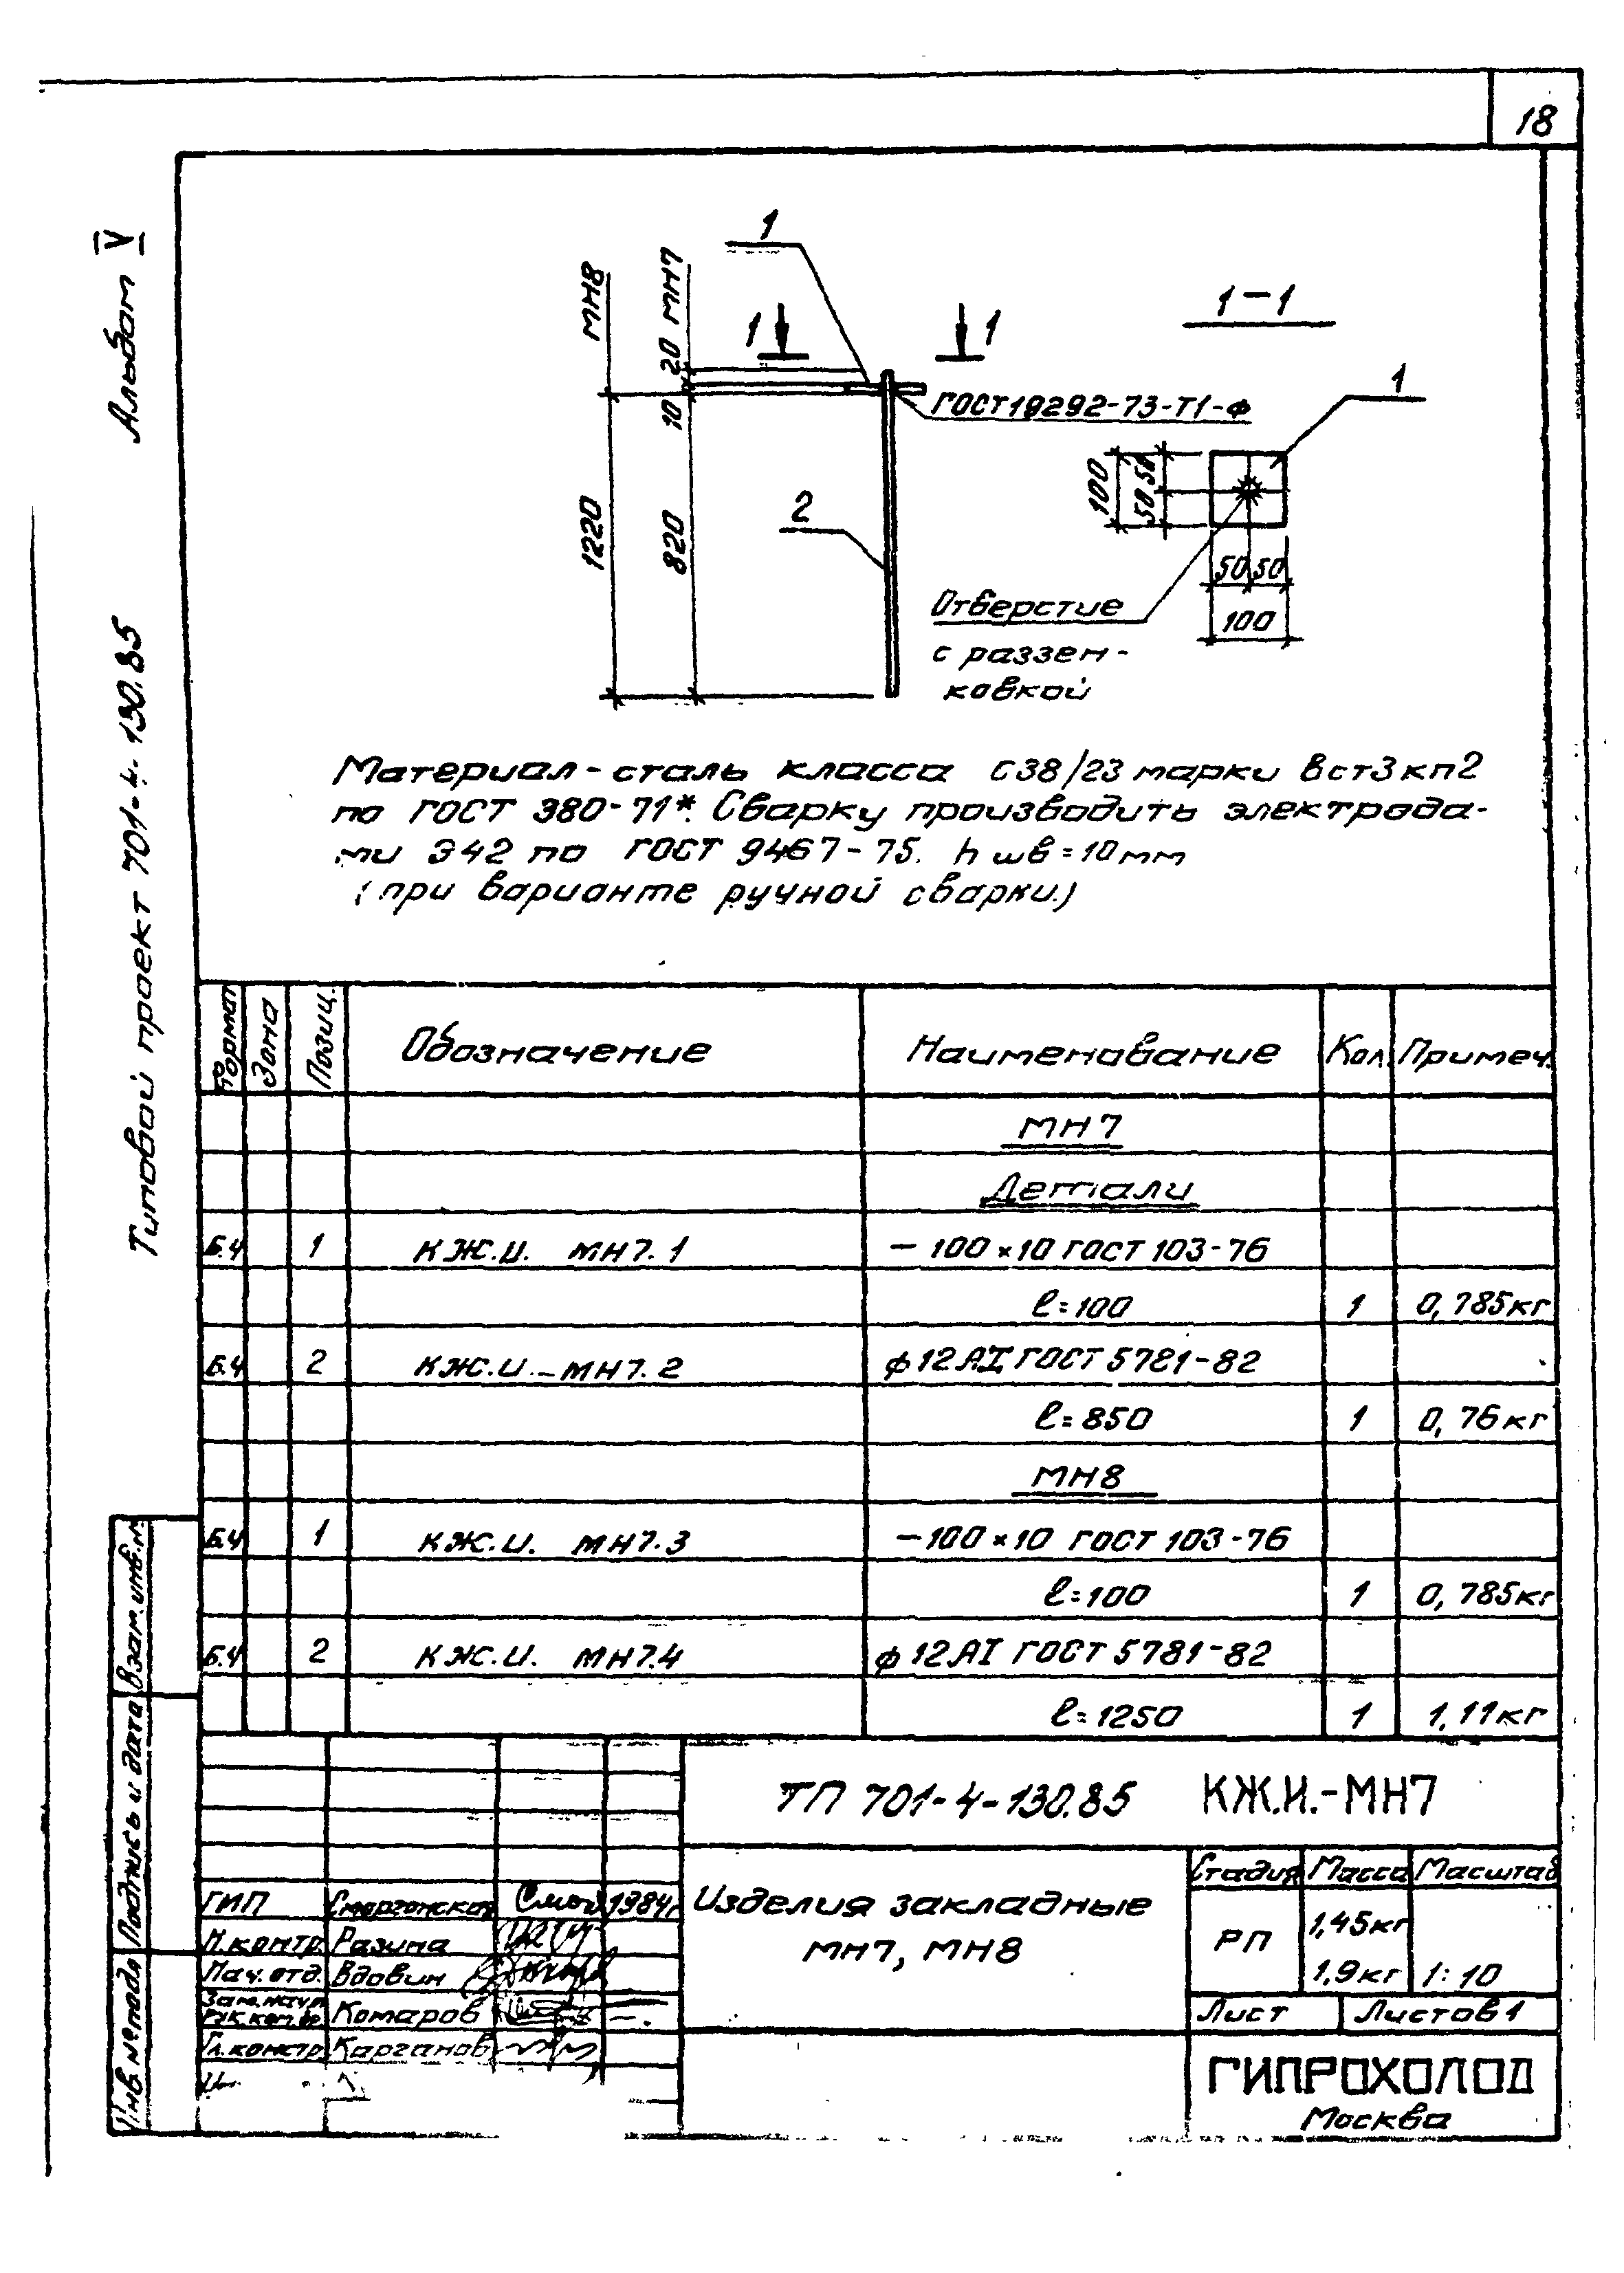 18
Альбом V
Типовой проект 701-4-130.85
1
МН8
20 МН7
1
1
10
ГОСТ 19292-73-Т1-Ф
1220
820
2
1-1
1
100
50 50
50 50
100
Отверстие
с раззен-
ковкой
Материал - сталь класса С38/23 марки ВСт3кп2
по ГОСТ 380-71*. Сварку производить электрода-
ми Э42 по ГОСТ 9467-75. h шв = 10 мм
(при варианте ручной сварки.)
Формат Зона Позиц. Обозначение Наименование Кол. Примеч.
МН7
Детали
Б.Ч 1 КЖ.И. МН7.1 - 100×10 ГОСТ 103-76
ℓ=100 1 0,785кг
Б.Ч 2 КЖ.И.-МН7.2 ф12АI ГОСТ 5781-82
ℓ=850 1 0,76кг
МН8
Б.Ч 1 КЖ.И. МН7.3 -100×10 ГОСТ 103-76
ℓ=100 1 0,785кг
Б.Ч 2 КЖ.И. МН7.4 ф12АI ГОСТ 5781-82
ℓ=1250 1 1,11кг
Взам.инв.н.
Подпись и дата
Инв.№ подл
ТП 701-4-130.85 КЖ.И.-МН7
Изделия закладные
МН7, МН8
Стадия Масса Масштаб
РП 1,45кг
1,9кг 1:10
Лист Листов 1
ГИП Сморгонская 1984г
Н.контр. Разина
Нач.отд. Вдовин
Комаров
Гл.констр. Карганов
ГИПРОХОЛОД
Москва